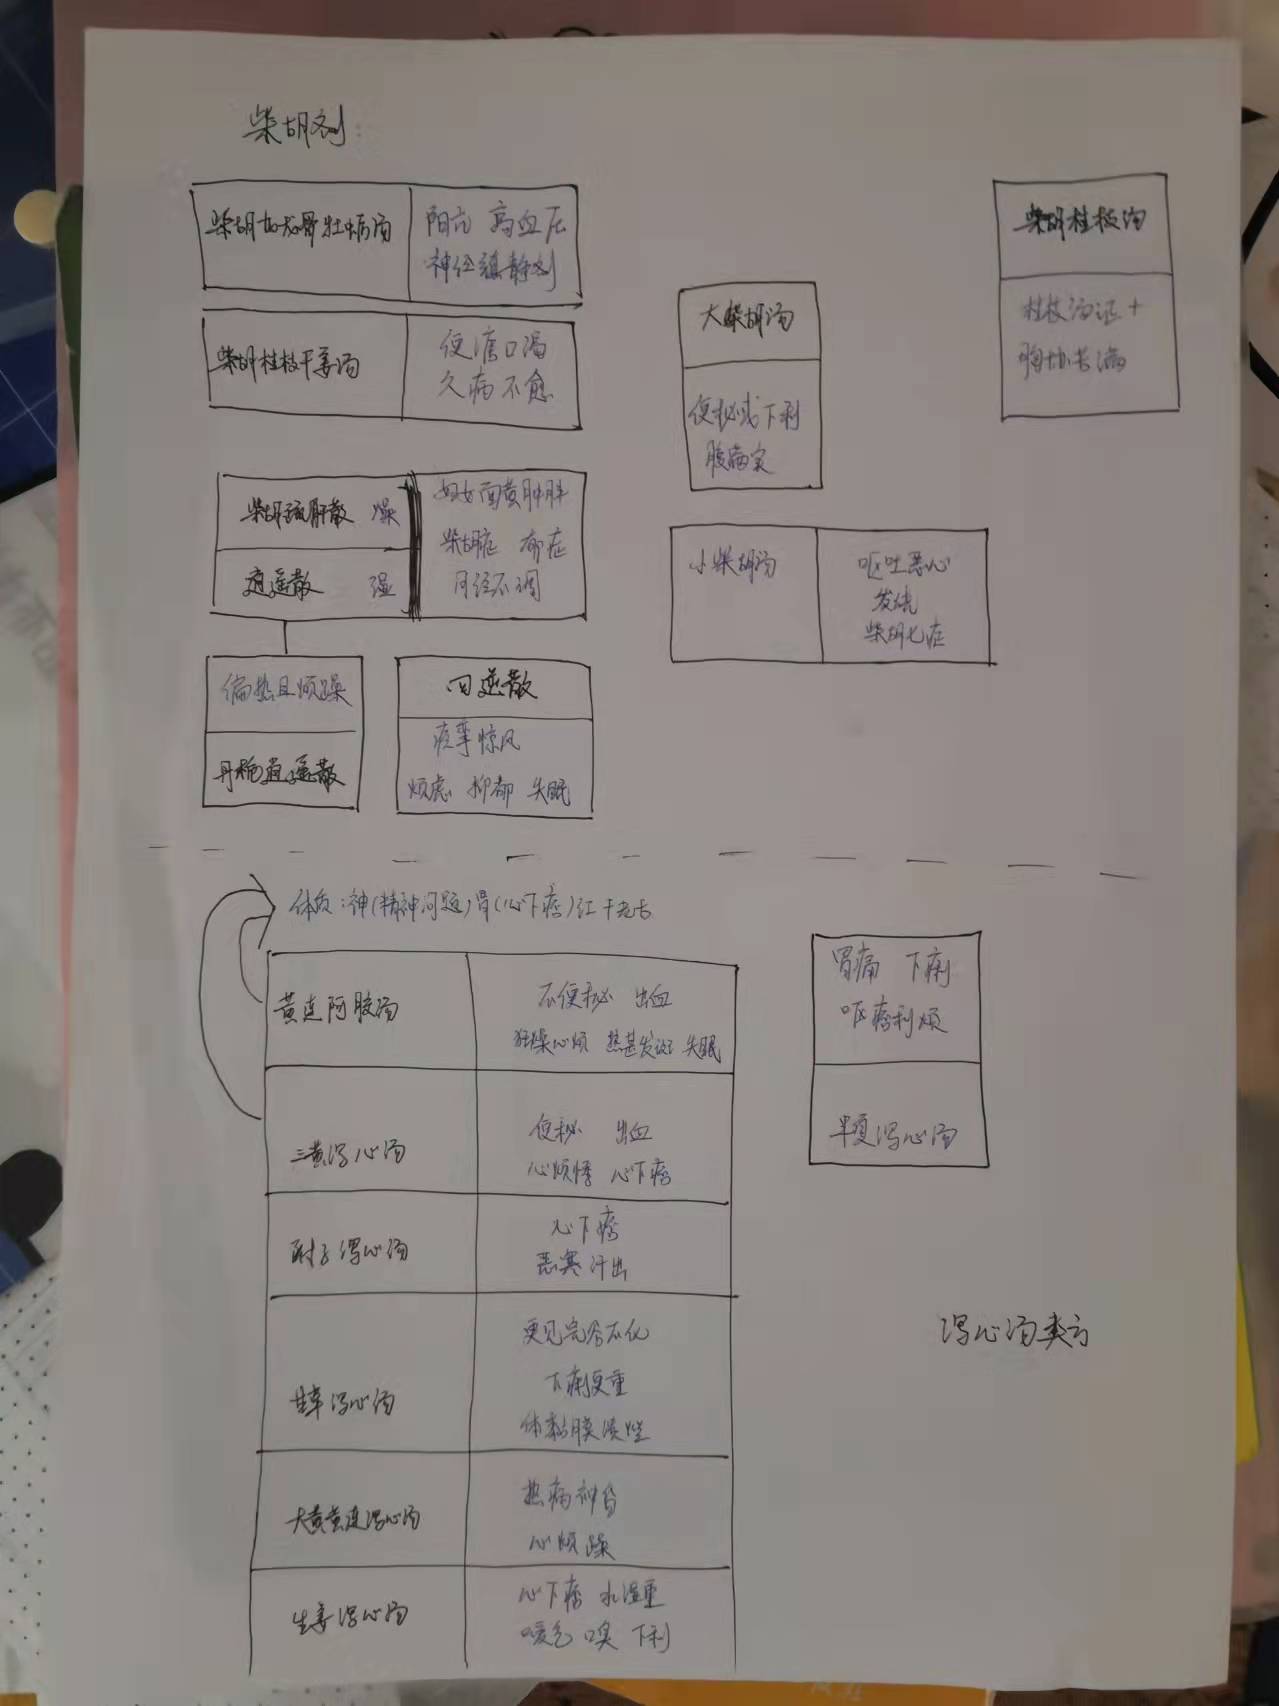 柴胡剂
柴胡加龙骨牡蛎汤
阳亢 高血压
神经镇静剂
柴胡桂枝干姜汤
便溏口渴
久病不愈
柴胡疏肝散 燥
逍遥散 湿
妇女面黄肿胖
柴胡症 郁症
月经不调
偏热且烦躁
丹栀逍遥散
四逆散
痉挛惊风
焦虑 抑郁 失眠
大柴胡汤
便秘或下利
腹满实
小柴胡汤
呕吐恶心
发烧
柴胡七症
柴胡桂枝汤
桂枝汤证+
胸胁苦满
体质:神(精神问题)胃(心下痞)红干老舌
黄连阿胶汤
不便秘 出血
狂躁心烦 热甚发斑 失眠
三黄泻心汤
便秘 出血
心烦悸 心下痞
附子泻心汤
心下痞
恶寒汗出
甘草泻心汤
更见完谷不化
下痢更重
体黏膜溃烂
大黄黄连泻心汤
热病神昏
心烦躁
生姜泻心汤
心下痞 水湿重
嗳气 嗅 下利
胃痛 下痢
呕痞利烦
半夏泻心汤
泻心汤类方